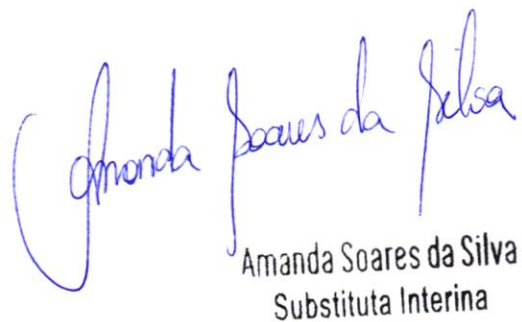 Amanda Soares da Silva
Amanda Soares da Silva
Substituta Interina